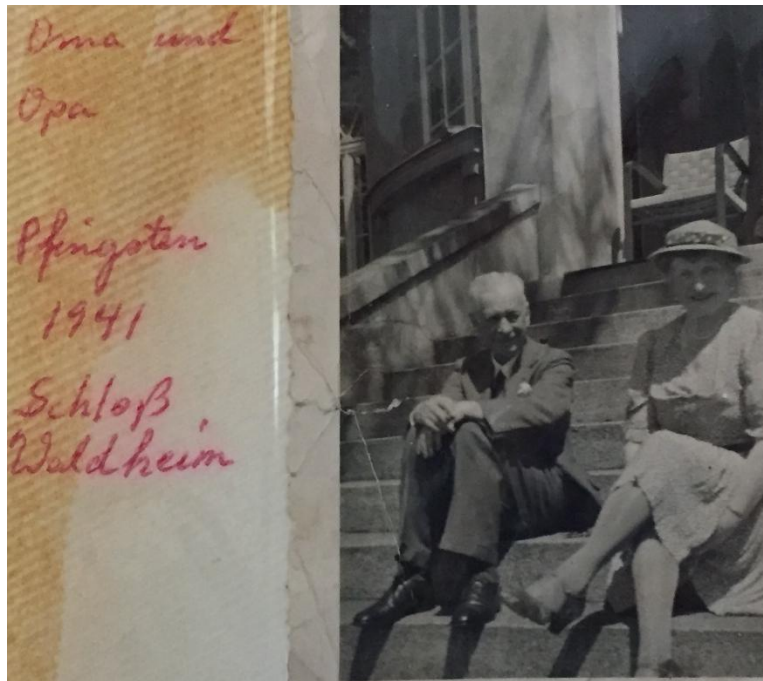 Oma und
Opa
Pfingsten
1941
Schloß
Waldheim